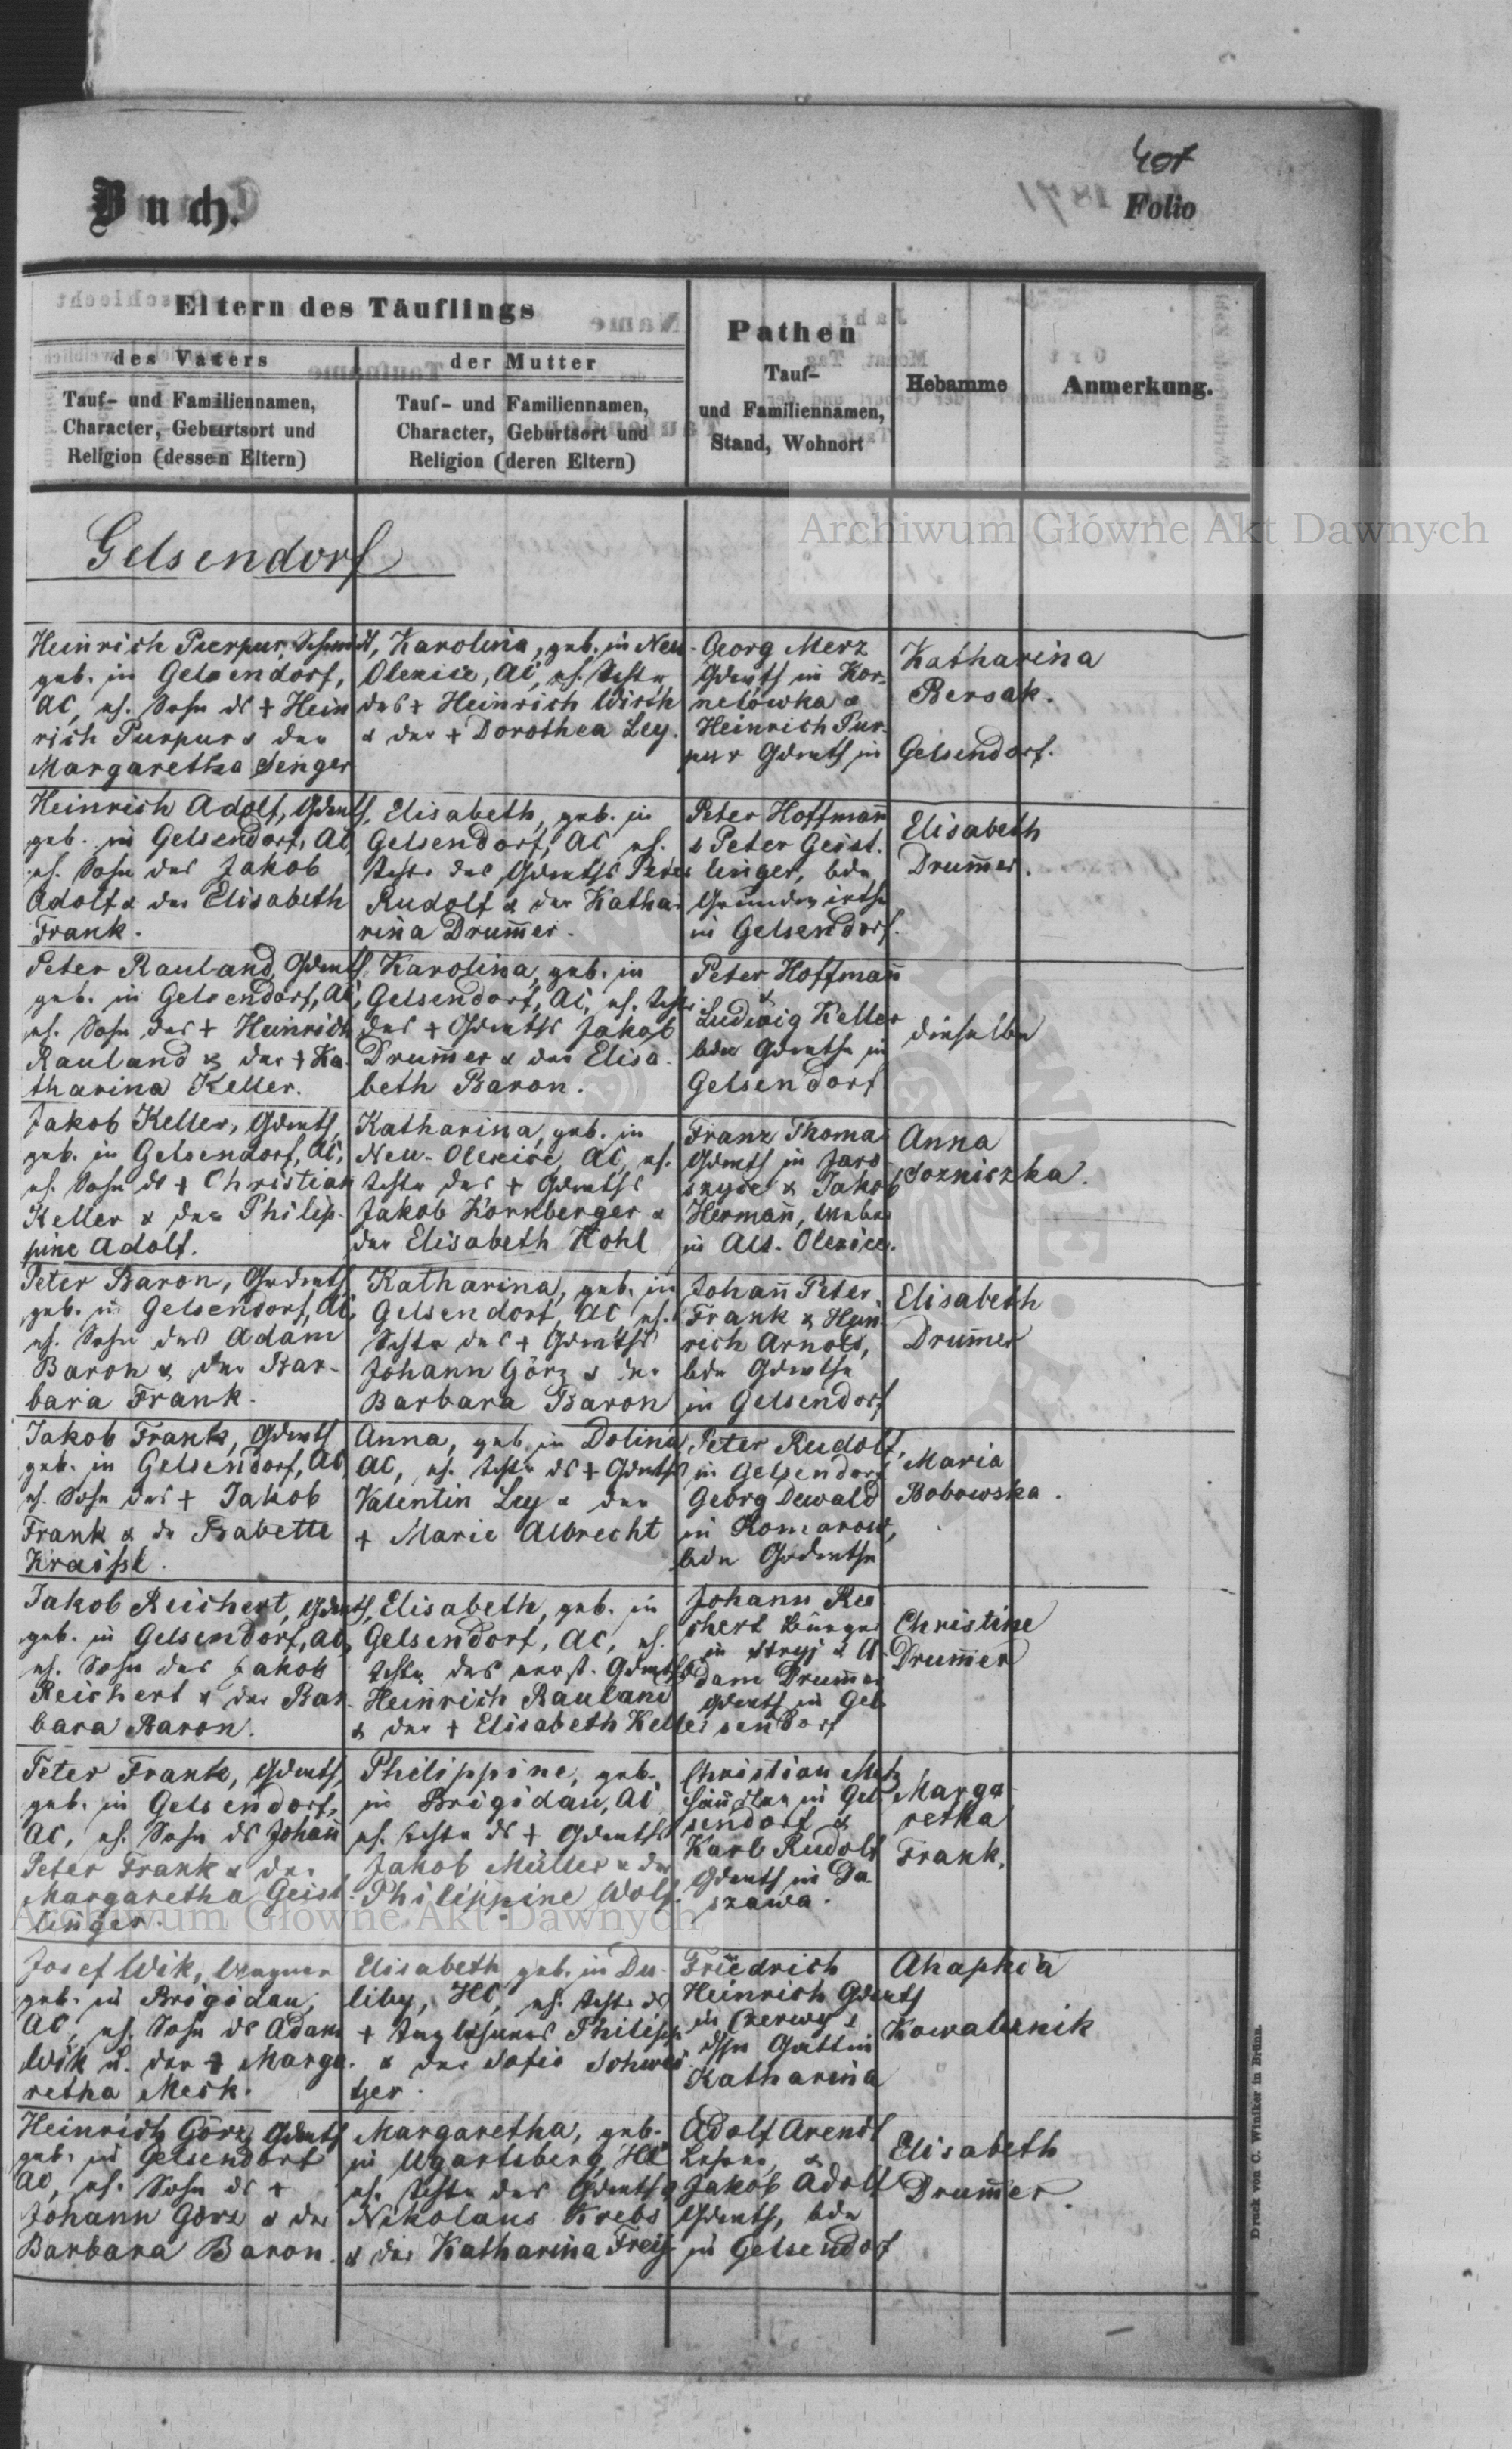 407
Buch.
Folio
Eltern des Täuflings
des Vaters
Tauf- und Familiennamen,
Character, Geburtsort und
Religion (dessen Eltern)
der Mutter
Tauf- und Familiennamen,
Character, Geburtsort und
Religion (deren Eltern)
Pathen
Tauf-
und Familiennamen,
Stand, Wohnort
Hebamme
Anmerkung.
Archiwum Główne Akt Dawnych
Gelsendorf
Heinrich Purpur, Schmidt,
geb. in Gelsendorf,
AC, eh. Sohn ds + Hein
rich Purpur & der
Margaretha Senger
Karolina, geb. in Neu-
Olexice, AC, eh. Tochter
des + Heinrich Wirth
& der + Dorothea Ley.
Georg Merz
Gdwrth in Kor-
nelowka &
Heinrich Pur-
pur Gdwrth in
Katharina
Bersak.
Gelsendorf.
Heinrich Adolf, Gdwrth,
geb. in Gelsendorf, AC,
eh. Sohn des Jakob
Adolf & der Elisabeth
Frank.
Elisabeth, geb. in
Gelsendorf, AC eh.
Tochter des Gdwrths Peter
Rudolf & der Katha-
rina Drum̅er.
Peter Hoffman̅
& Peter Geist-
linger, bde
Grundwirthe
in Gelsendorf.
Elisabeth
Drum̅er.
Peter Rauland, Gdwrth,
geb. in Gelsendorf, AC,
eh. Sohn des + Heinrich
Rauland & der + Ka-
tharina Keller.
Karolina, geb. in
Gelsendorf, AC, eh. Tochter
des + Gdwrths Jakob
Drum̅er & der Elisa-
beth Baron.
Peter Hoffman̅
&
Ludwig Keller
bde Gdwrthe in
Gelsendorf
dieselbe
Jakob Keller, Gdwrth,
geb. in Gelsendorf, AC,
eh. Sohn ds + Christian
Keller & der Philip-
pine Adolf.
Katharina, geb. in
Neu-Olexice, AC, eh.
Tochter des + Gdwrths
Jakob Kornberger &
der Elisabeth Kohl
Franz Thomas
Gdwrth in Jaro
szyce & Jakob
Herman̅, Weber
in Alt-Olexice.
Anna
Peter Baron, Grdwrth,
geb. in Gelsendorf, AC,
eh. Sohn des Adam
Baron & der Bar-
bara Frank.
Katharina, geb. in
Gelsendorf, AC eh.
Tochter des + Gdwrths
Johann Görz & der
Barbara Baron
Johan̅ Peter
Frank & Hein
rich Arnold,
bde Gdwrthe
in Gelsendorf
Elisabeth
Drum̅er
Jakob Frank, Gdwrth
geb. in Gelsendorf, AC
eh. Sohn des + Jakob
Frank & dr Babette
Anna, geb. in Dolina,
AC, eh. Tochter ds + Gdwrths
Valentin Ley & der
+ Marie Albrecht
Peter Rudolf,
in Gelsendorf
Georg Dewald
in Komarow,
bde Grdwrthe
Maria
Bobowska.
Jakob Reichert, Gdwrth,
geb. in Gelsendorf, AC,
eh. Sohn des Jakob
Reichert & der Bar-
bara Baron.
Elisabeth, geb. in
Gelsendorf, AC, eh.
Tochter des verst. Gdwrths
Heinrich Rauland
& der + Elisabeth Keller
Johann Rei
chert Bürger
in Stryj & A-
dam Drum̅er
Gdwrth in Gel-
sendorf
Christine
Drum̅er
Peter Frank, Gdwrth,
geb. in Gelsendorf,
AC, eh. Sohn ds Johan̅
Peter Frank & der
Margaretha Geist-
linger.
Philippine, geb.
in Brigidau, AC
eh. Tochter ds + Gdwrths
Jakob Müller & der
Philippine Wolf.
Christian
in Gel-
sendorf &
Karl Rudolf
Gdwrth in Da
szawa.
Marga-
retha
Frank.
Archiwum Główne Akt Dawnych
Josef Wik, Wagner
geb. in Brigidau,
AC, eh. Sohn ds Adam
Wik u. der + Marga-
retha Mesk.
Elisabeth geb. in Du-
liby, HC, eh. Tochter ds
+ Taglöhners Philipp
& der Sofie Schwei-
tzer.
Friedrich
Heinrich Gdwrth
in
dssn Gattin
Katharina
Ahaphia
Kowalznik
Heinrich Görz, Gdwrth
geb. in Gelsendorf
AC, eh. Sohn ds +
Johann Görz & der
Barbara Baron.
Margaretha, geb.
in Ugartsberg, HC
eh. Tochter des Gdwrths
Nikolaus Krebs
& der Katharina Frey
Adolf Arendt
Lehrer, &
Jakob Adolf
Gdwrth, bde
in Gelsendorf
Elisabeth
Drum̅er.
Druck von C. Winiker in Brünn.